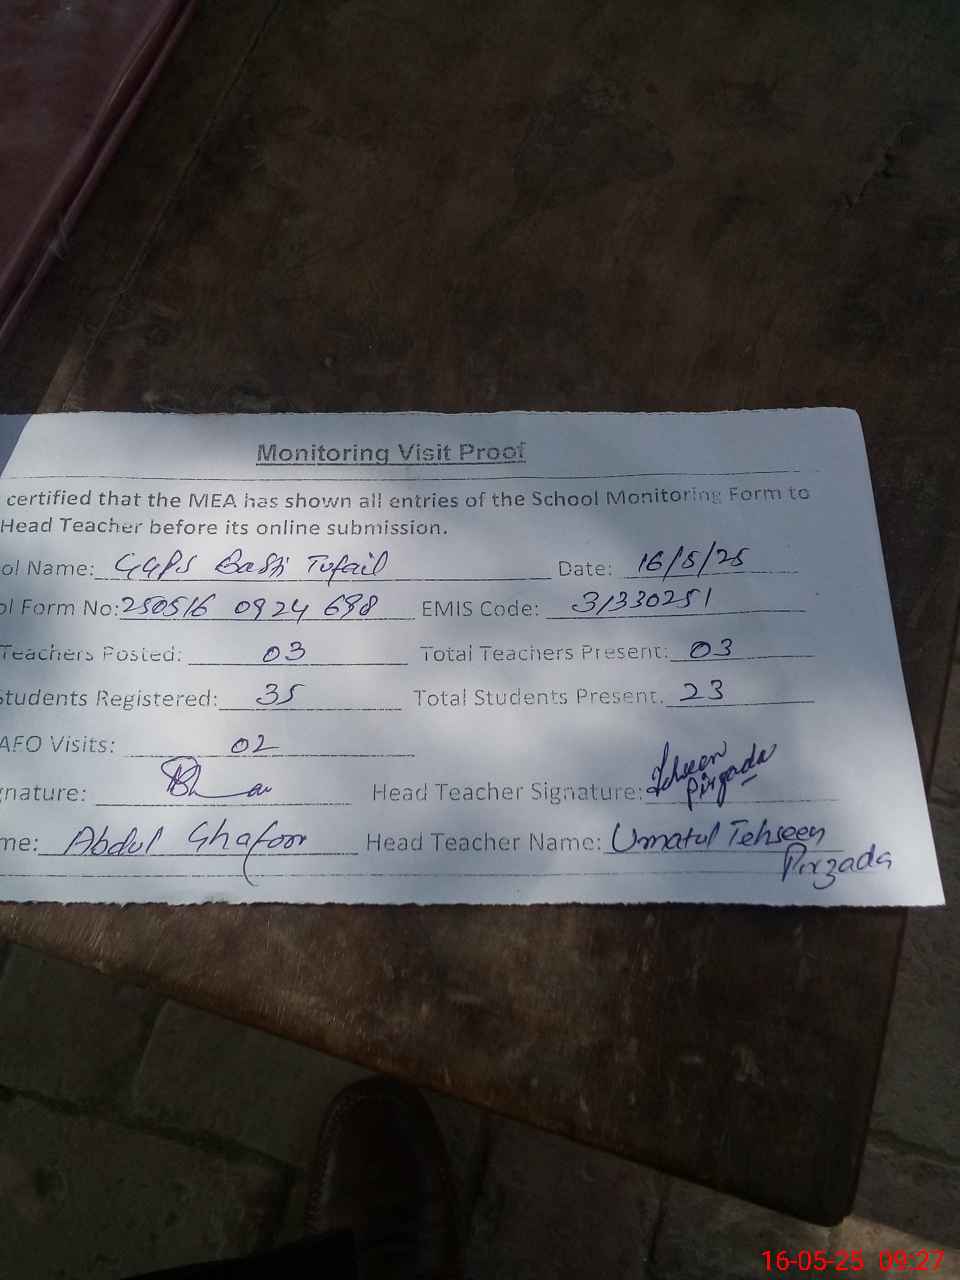 Monitoring Visit Proof
certified that the MEA has shown all entries of the School Monitoring Form to
Head Teacher before its online submission.
ol Name: GGPS Basti Tufail Date: 16/5/25
ol Form No: 250516 0924 698 EMIS Code: 31330251
Teachers Posted: 03 Total Teachers Present: 03
Students Registered: 35 Total Students Present. 23
AEO Visits: 02
gnature: Head Teacher Signature: Tehseen Pirzada
me: Abdul Ghafoor Head Teacher Name: Umatul Tehseen
Pirzada
16-05-25 09:27